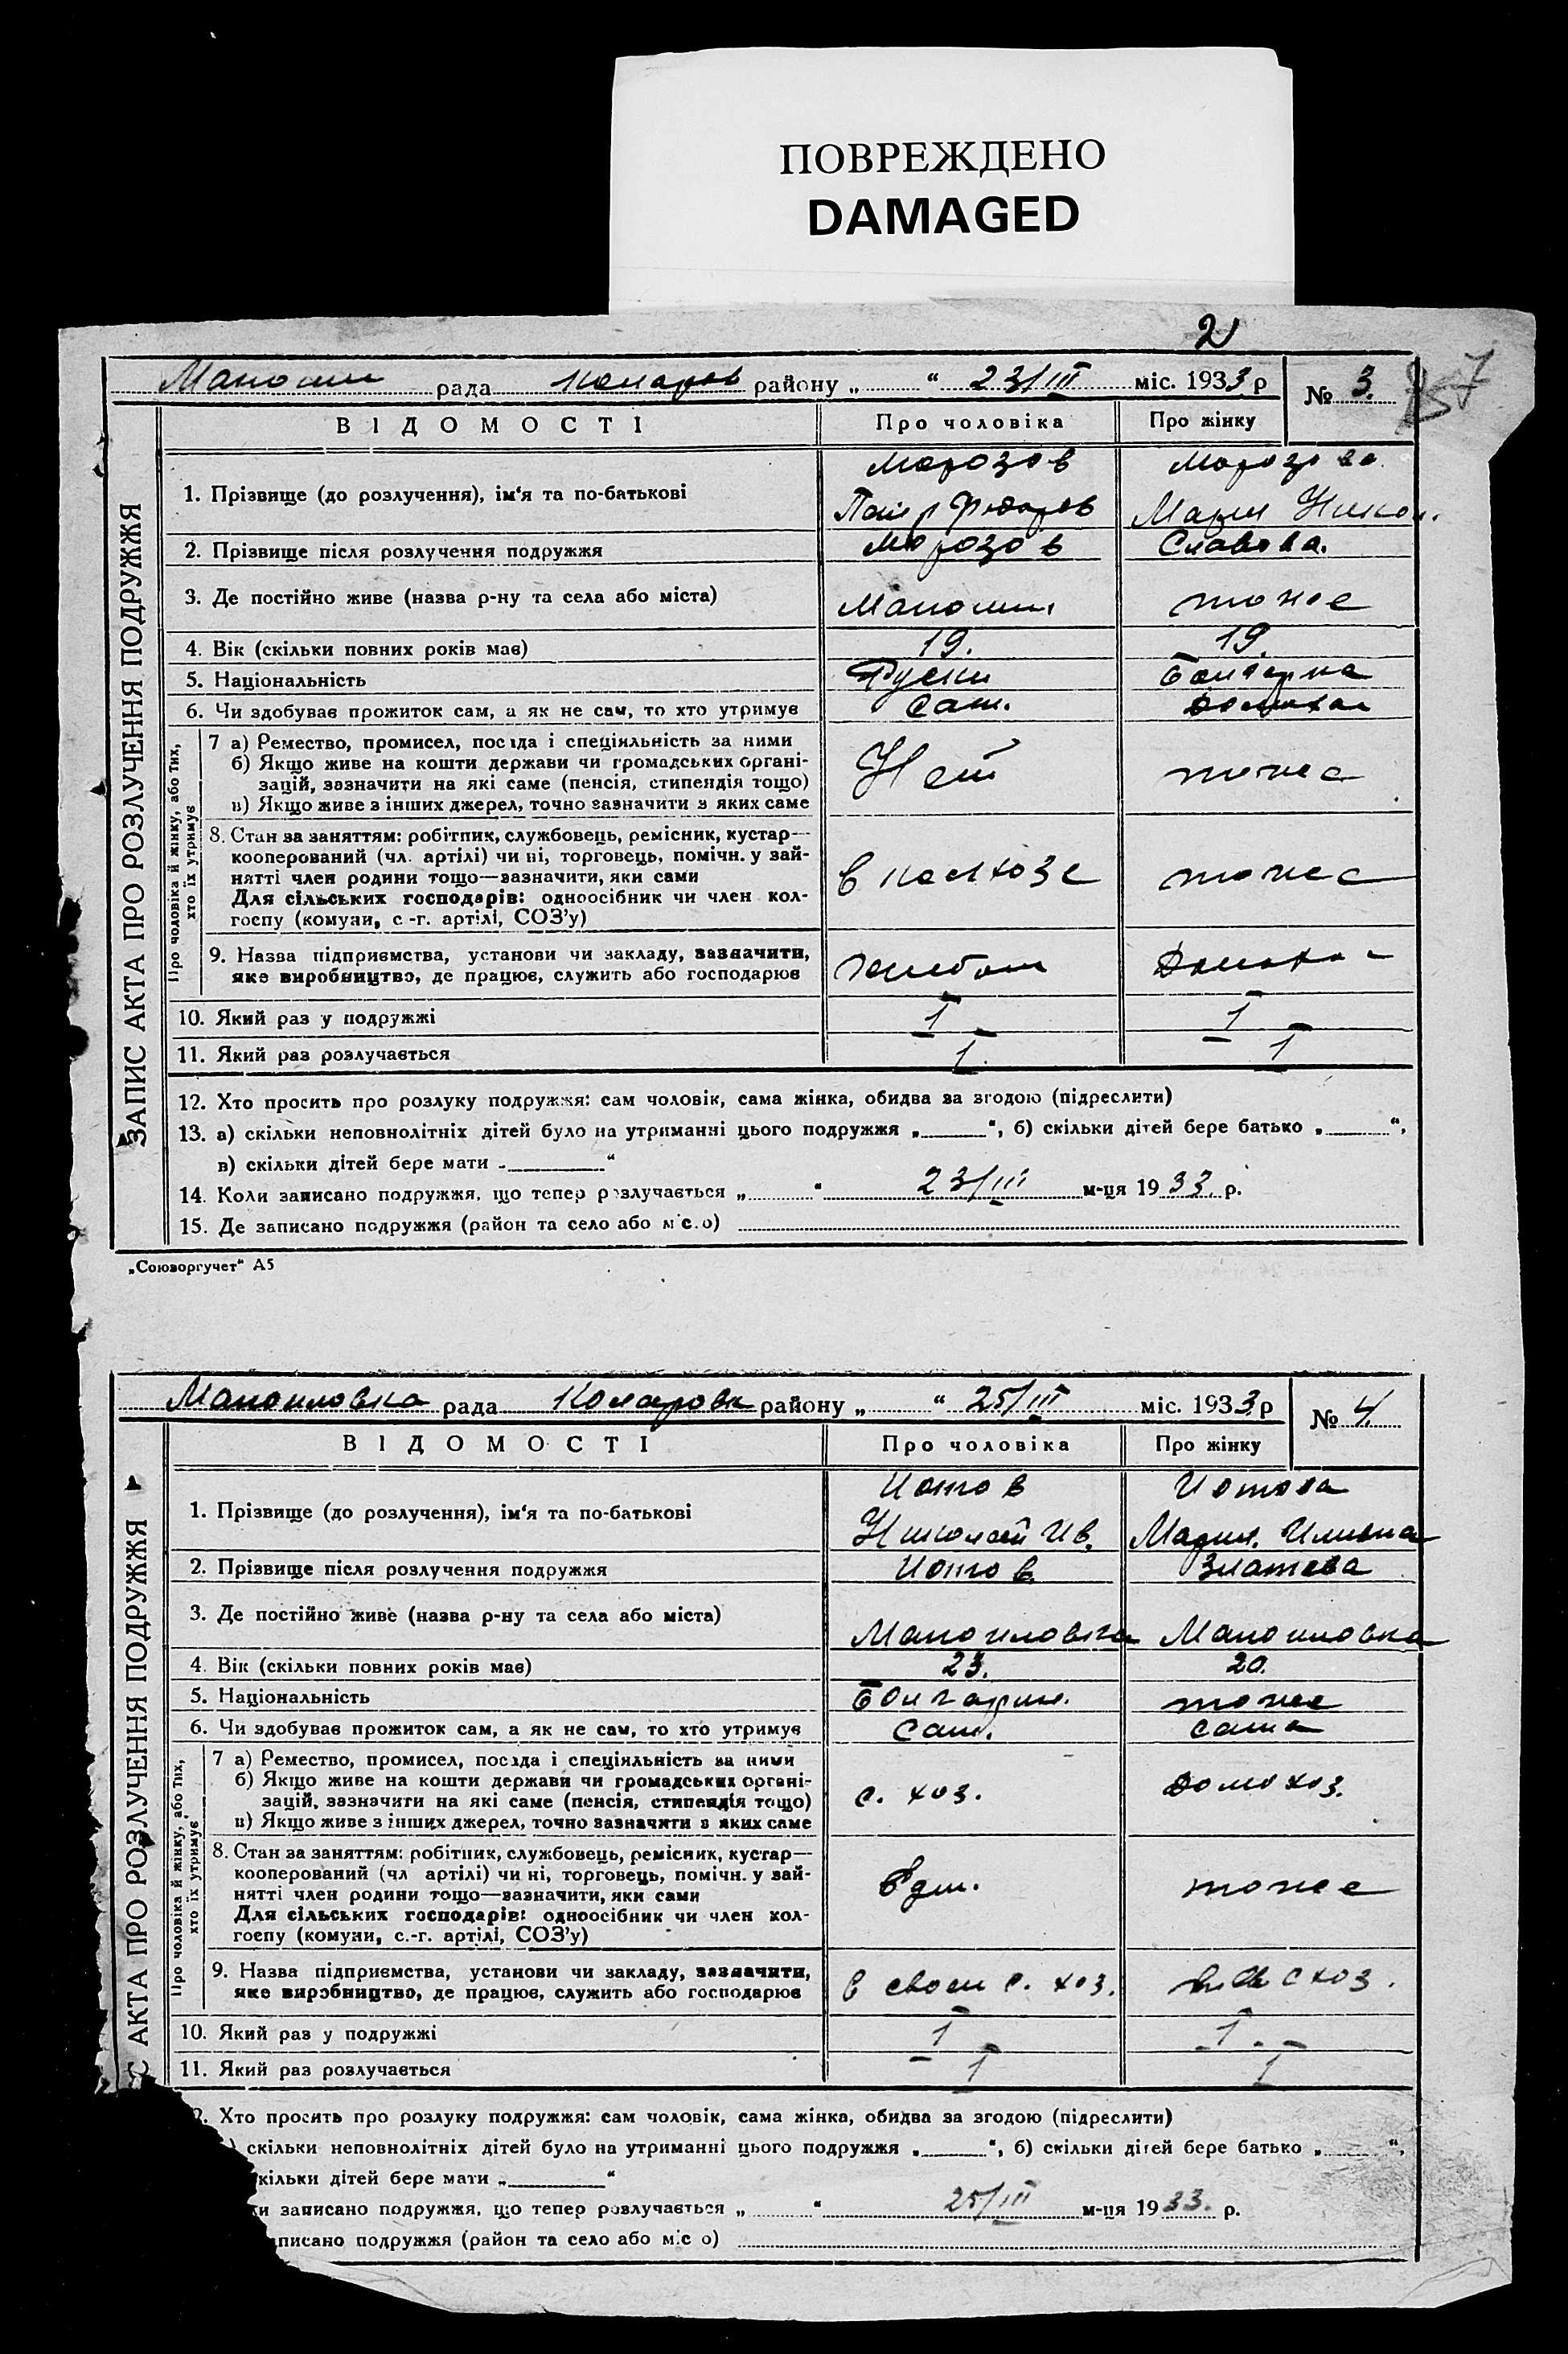 ПОВРЕЖДЕНО
DAMAGED
2
рада район у „ “ 23/III міс. 1933 р № 3.
ЗАПИС АКТА ПРО РОЗЛУЧЕННЯ ПОДРУЖЖЯ
ВІДОМОСТІ Про чоловіка Про жінку
Морозов Морозова
1. Прізвище (до розлучення), ім'я та по-батькові
Федоров Мария Никол.
2. Прізвище після розлучення подружжя Морозов Славова.
3. Де постійно живе (назва р-ну та села або міста) тоже
4. Вік (скільки повних років має) 19. 19.
5. Національність Руски Болгарка
6. Чи здобував прожиток сам, а як не сам, то хто утримує Сам.
Про чоловіка й жінку, або тих, хто їх утримує
7 а) Ремество, промисел, посада і спеціяльність за ними
б) Якщо живе на кошти держави чи громадських органі-
зацій, зазначити на які саме (пенсія, стипендія тощо) Нет тоже
в) Якщо живе з інших джерел, точно зазначити з яких саме
8. Стан за заняттям: робітник, службовець, ремісник, кустар—
кооперований (чл. артілі) чи ні, торговець, помічн. у зай-
нятті член родини тощо—зазначити, яки сами в колхозе тоже
Для сільських господарів: одноосібник чи член кол-
госпу (комуни, с.-г. артілі, СОЗ'у)
9. Назва підприємства, установи чи закладу, зазначити,
яке виробництво, де працює, служить або господарює
10. Який раз у подружжі 1 1
11. Який раз розлучається 1 1
12. Хто просить про розлуку подружжя: сам чоловік, сама жінка, обидва за згодою (підреслити)
13. а) скільки неповнолітніх дітей було на утриманні цього подружжя „ “, б) скільки дітей бере батько „ “,
в) скільки дітей бере мати „ “
14. Коли записано подружжя, що тепер розлучається „ “ 23/III м-ця 1933. р.
15. Де записано подружжя (район та село або місто)
„Союзоргучет“ А5
Манойловка рада район у „ “ 25/III міс. 1933 р № 4
С АКТА ПРО РОЗЛУЧЕННЯ ПОДРУЖЖЯ
ВІДОМОСТІ Про чоловіка Про жінку
Йотов Йотова
1. Прізвище (до розлучення), ім'я та по-батькові
Николай Ив. Мария. Ильвна
2. Прізвище після розлучення подружжя Йотов. Златева
3. Де постійно живе (назва р-ну та села або міста)
Манойловка Манойловка
4. Вік (скільки повних років має) 23. 20.
5. Національність тоже
6. Чи здобував прожиток сам, а як не сам, то хто утримує Сам. сама
Про чоловіка й жінку, або тих, хто їх утримує
7 а) Ремество, промисел, посада і спеціяльність за ними
б) Якщо живе на кошти держави чи громадських органі-
зацій, зазначити на які саме (пенсія, стипендія тощо) с. хоз. домохоз.
в) Якщо живе з інших джерел, точно зазначити з яких саме
8. Стан за заняттям: робітник, службовець, ремісник, кустар—
кооперований (чл артілі) чи ні, торговець, помічн. у зай-
нятті член родини тощо—зазначити, яки сами тоже
Для сільських господарів: одноосібник чи член кол-
госпу (комуни, с.-г. артілі, СОЗ'у)
9. Назва підприємства, установи чи закладу, зазначити,
яке виробництво, де працює, служить або господарює в своем с. хоз.
10. Який раз у подружжі 1 1
11. Який раз розлучається 1 1
Хто просить про розлуку подружжя: сам чоловік, сама жінка, обидва за згодою (підреслити)
скільки неповнолітніх дітей було на утриманні цього подружжя „ “, б) скільки дітей бере батько „ “,
кільки дітей бере мати „ “
и записано подружжя, що тепер розлучається „ “ 25/III м-ця 1933. р.
писано подружжя (район та село або міс о)